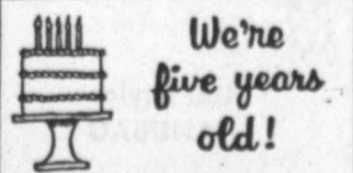 We're
five years
old!